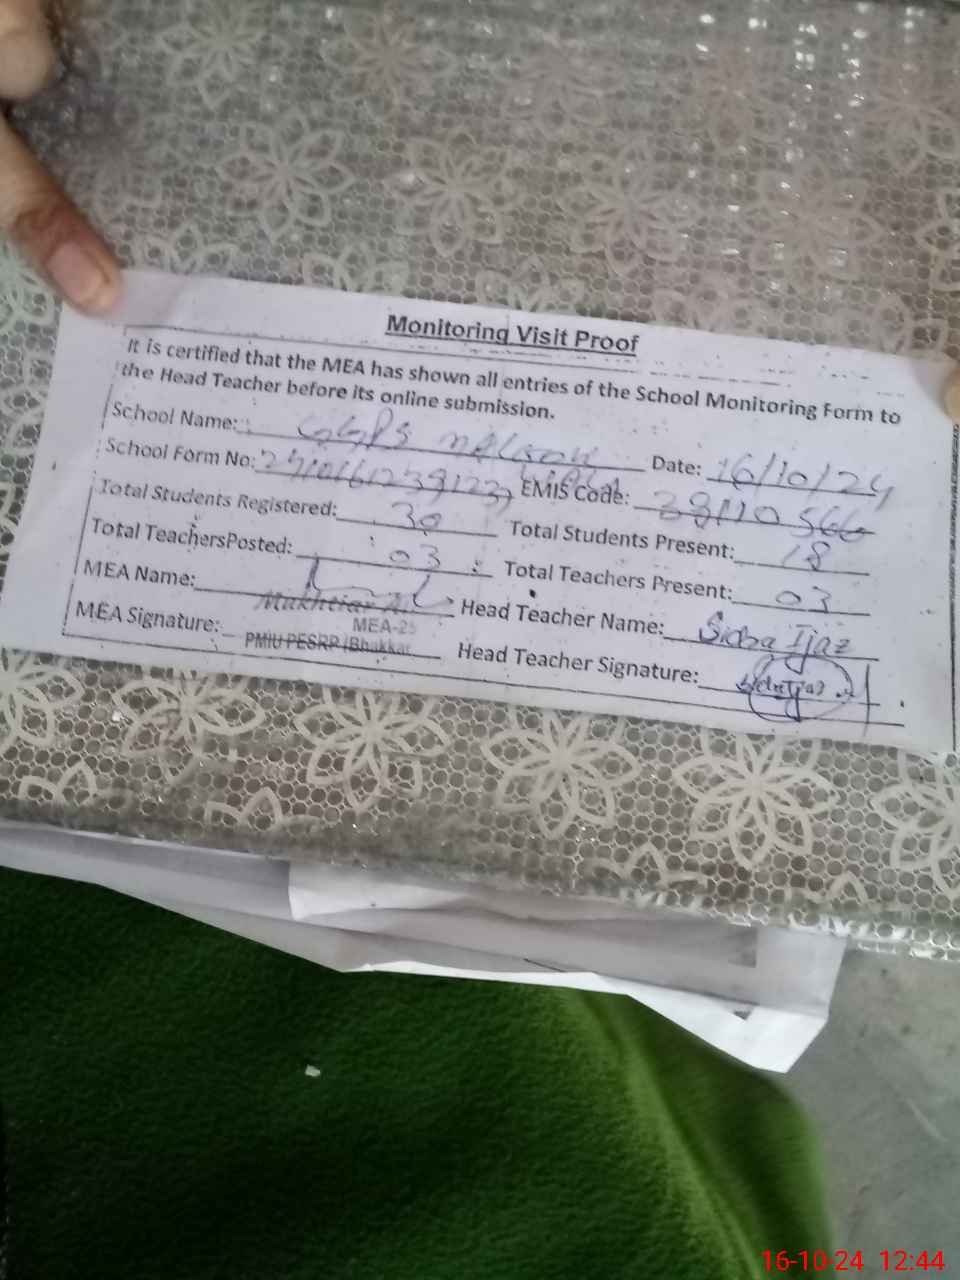 Monitoring Visit Proof
It is certified that the MEA has shown all entries of the School Monitoring Form to
the Head Teacher before its online submission.
School Name: GGPS Date: 16/10/24
School Form No: EMIS Code: 38110566
Total Students Registered: 30 Total Students Present: 18
Total TeachersPosted: 03 Total Teachers Present: 03
MEA Name: Mukhtiar A. Head Teacher Name: Sidra Ijaz
MEA Signature: MEA-25 Head Teacher Signature: Sidra Ijaz
PMIU PESRP /Bhakkar
16-10-24 12:44